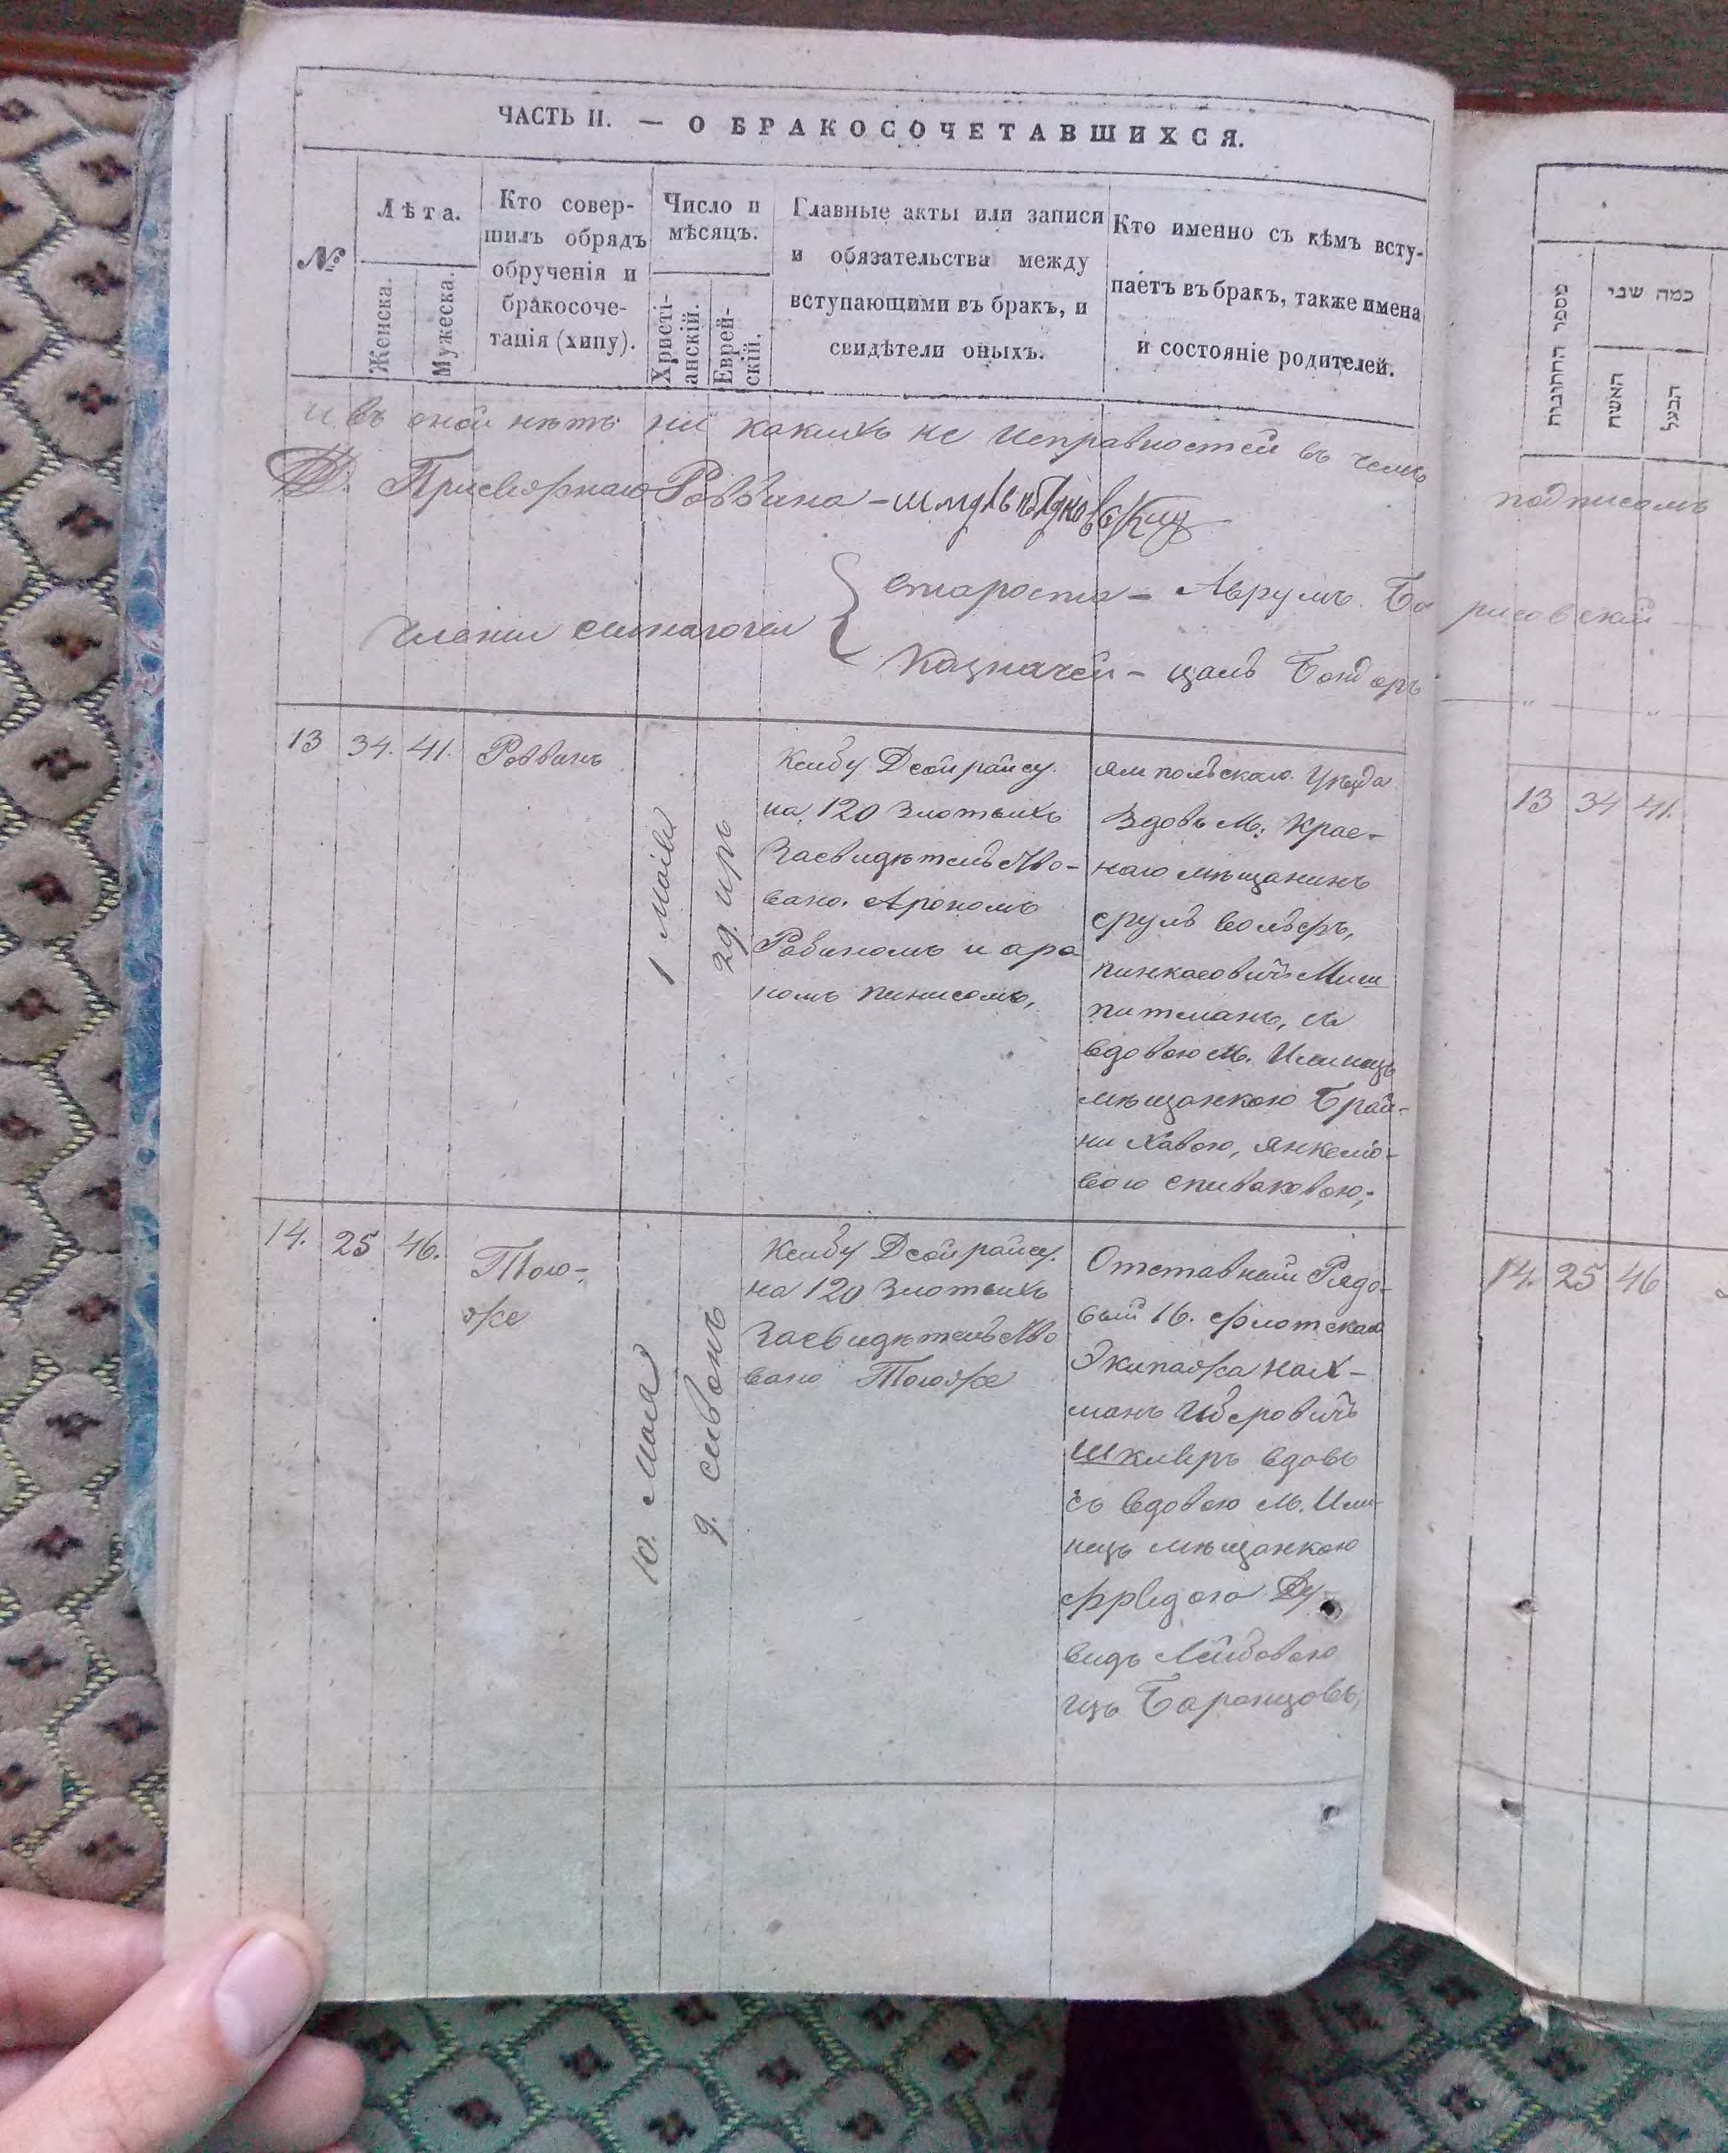 ЧАСТЬ II. — О БРАКОСОЧЕТАВШИХСЯ.
№
Лѣта.
Женска.
Мужеска.
Кто совер-
шилъ обрядъ
обрученія и
бракосоче-
танія (хипу).
Число и
мѣсяцъ.
Христі-
анскій.
Еврей-
скій.
Главные акты или записи
и обязательства между
вступающими въ бракъ, и
свидѣтели оныхъ.
Кто именно съ кѣмъ всту-
паетъ въ бракъ, также имена
и состояніе родителей.
и въ оной нѣтъ ни какихъ не исправностей въ чемъ подписомъ
Присяжнаго Раввина —
члени синагоги
староста — Аврумъ Борисовский
Казначей — Бондарь
13
34.
41.
Раввинъ
1 Маія
29. иръ
Ксибу Дсойрайсу.
на 120 Злотыхъ
Засвидѣтельство-
вано. Арономъ
Равиномъ и аро
номъ пинисомъ,
ямпольскаго Уѣзда
Вдовъ М. Крас-
наго мѣщанинъ
срулъ волъфъ,
пинкасовичъ
питманъ, съ
вдовою М. Илинцъ
мѣщанкою Брай-
ни Хавою, янкелю-
вою спиваковою,
14.
25
46.
Того-
же
10. Мая
9. сивонъ
Ксибу Дсойрайсу.
на 120 Злотыхъ
Засвидѣтельство
вано Тогоже
Отставной Рядо-
вый 16. флотскаго
Экипажа Нах-
манъ Иберовичъ
Шкляръ вдовъ
съ вдовою М. Или-
нецъ мѣщанкою
видъ Лейбовою
изъ Баранцовъ,
מספר החתונות
כמה שני
האשה
הבעל
13
34
41.
14.
25
46